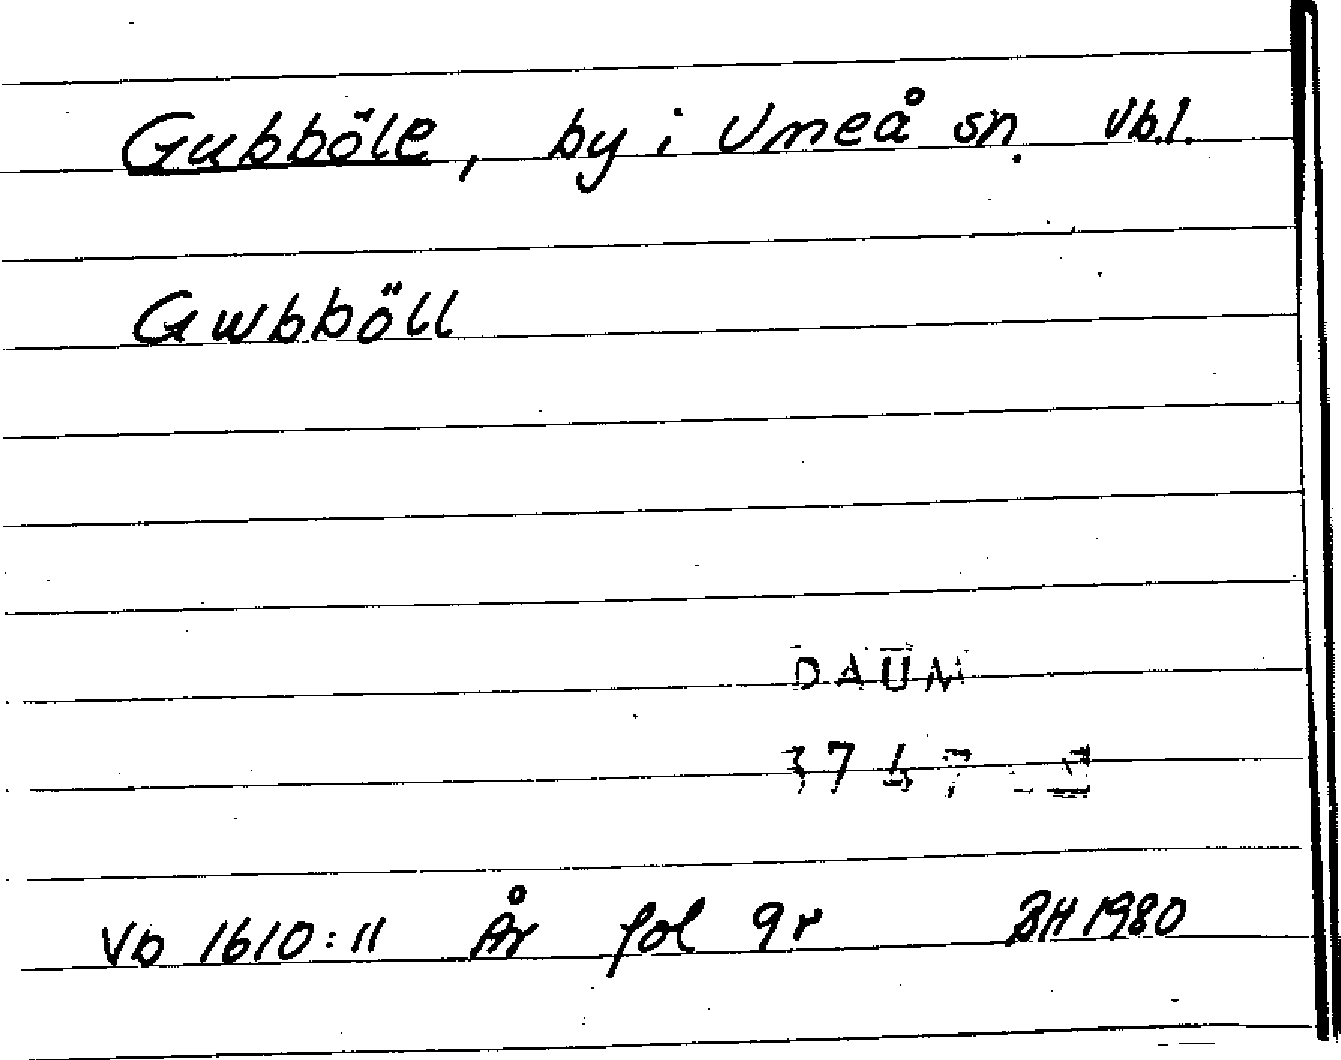 Gubböle, by i Umeå sn. Vb.l.
Gwbböll
DAUM
Vb 1610:11 År fol 9r BH 1980